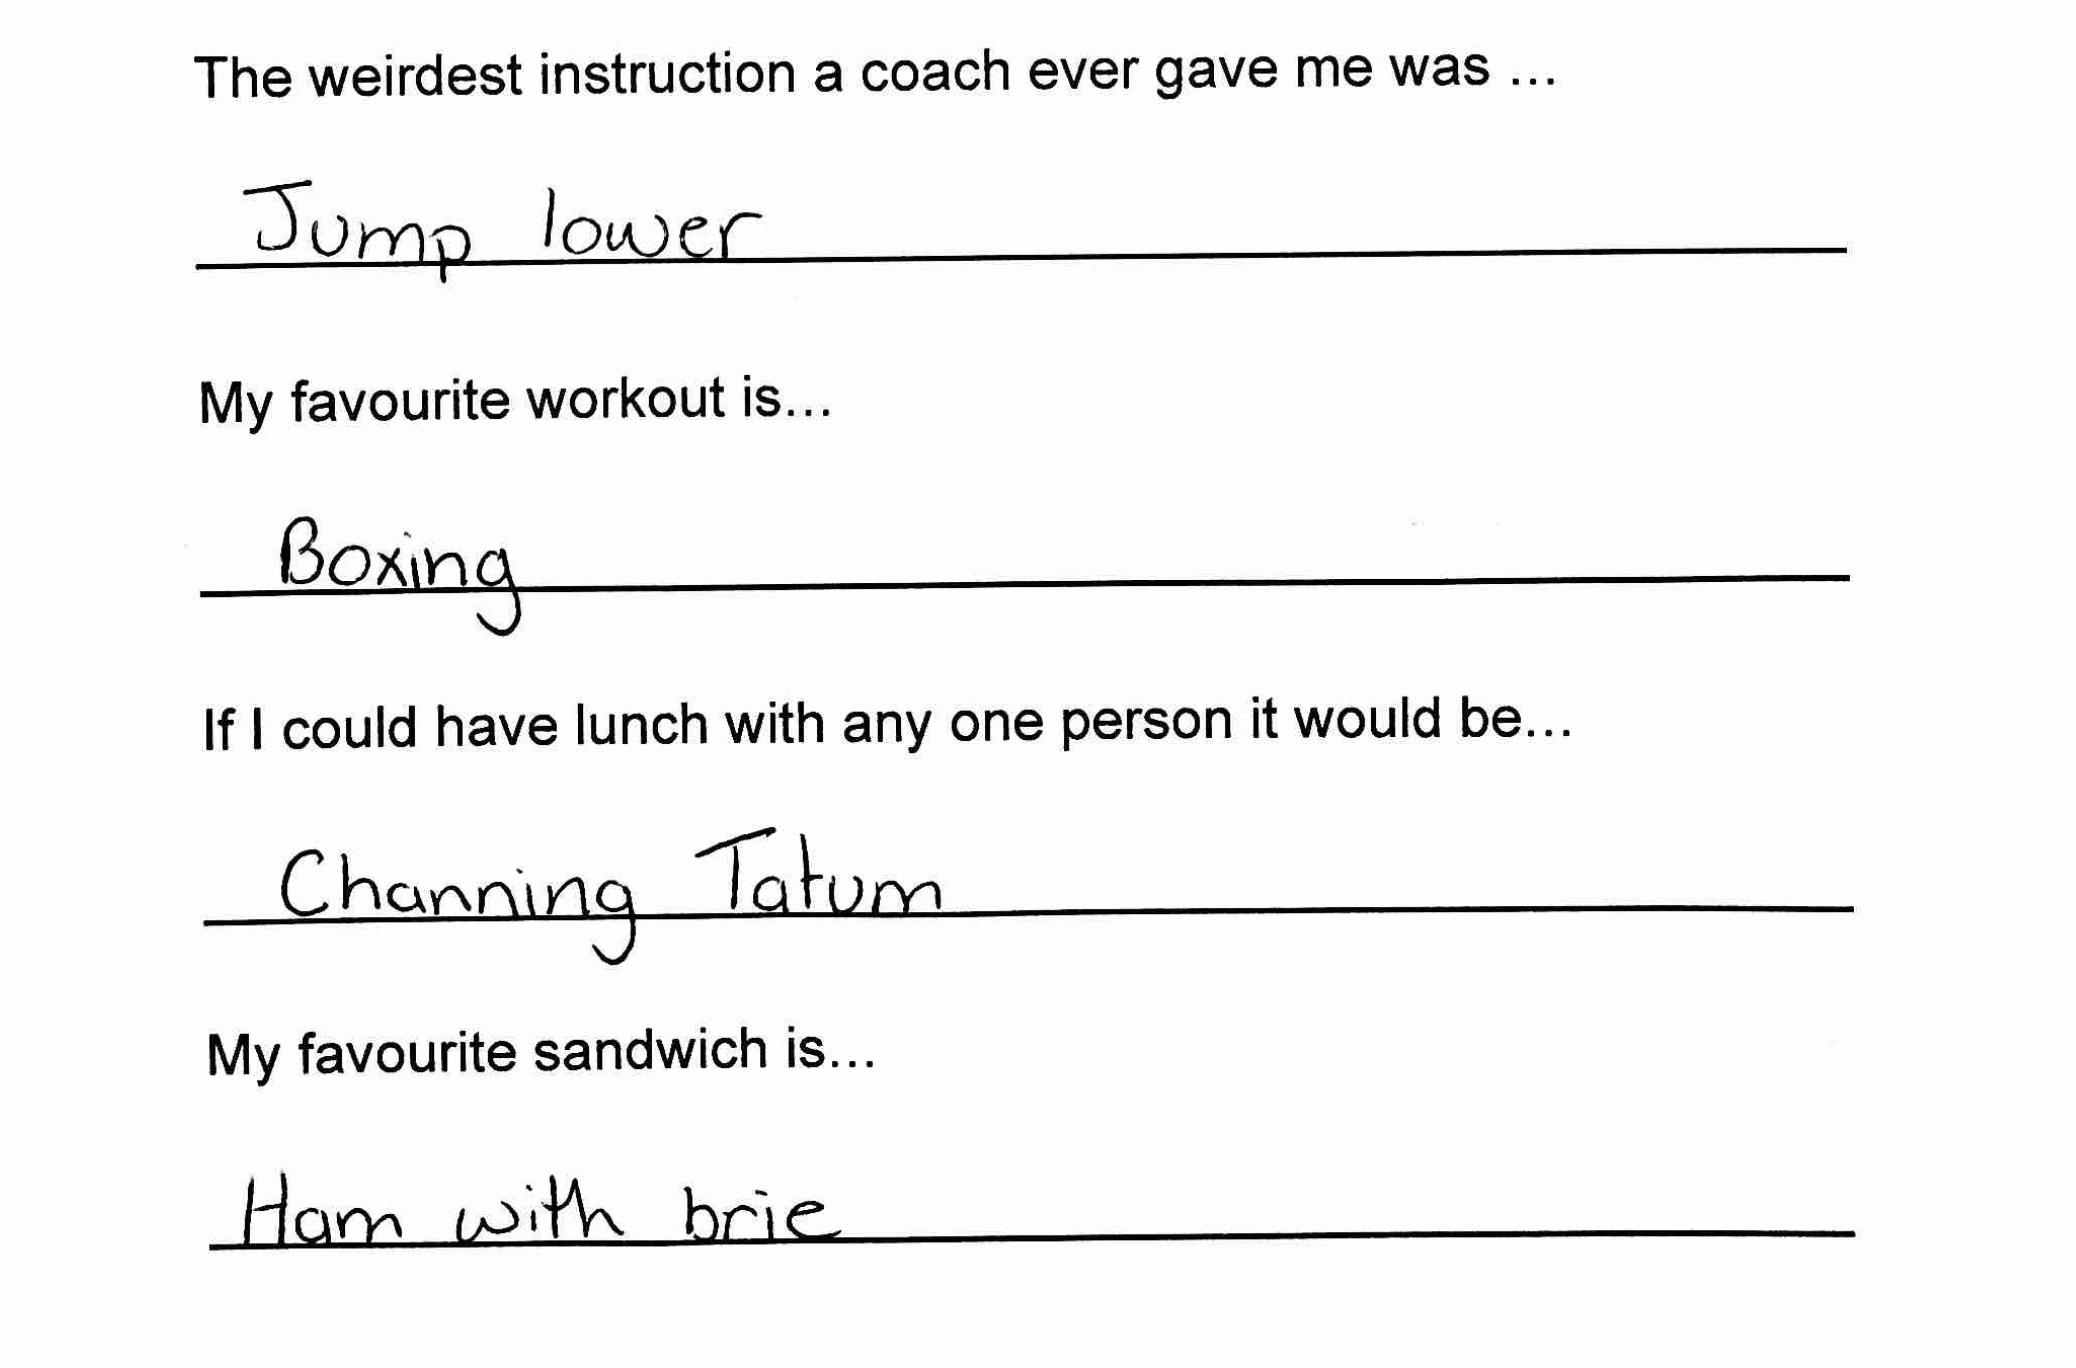 The weirdest instruction a coach ever gave me was ...
Jump lower
My favourite workout is...
Boxing
If I could have lunch with any one person it would be...
Channing Tatum
My favourite sandwich is...
Ham with brie